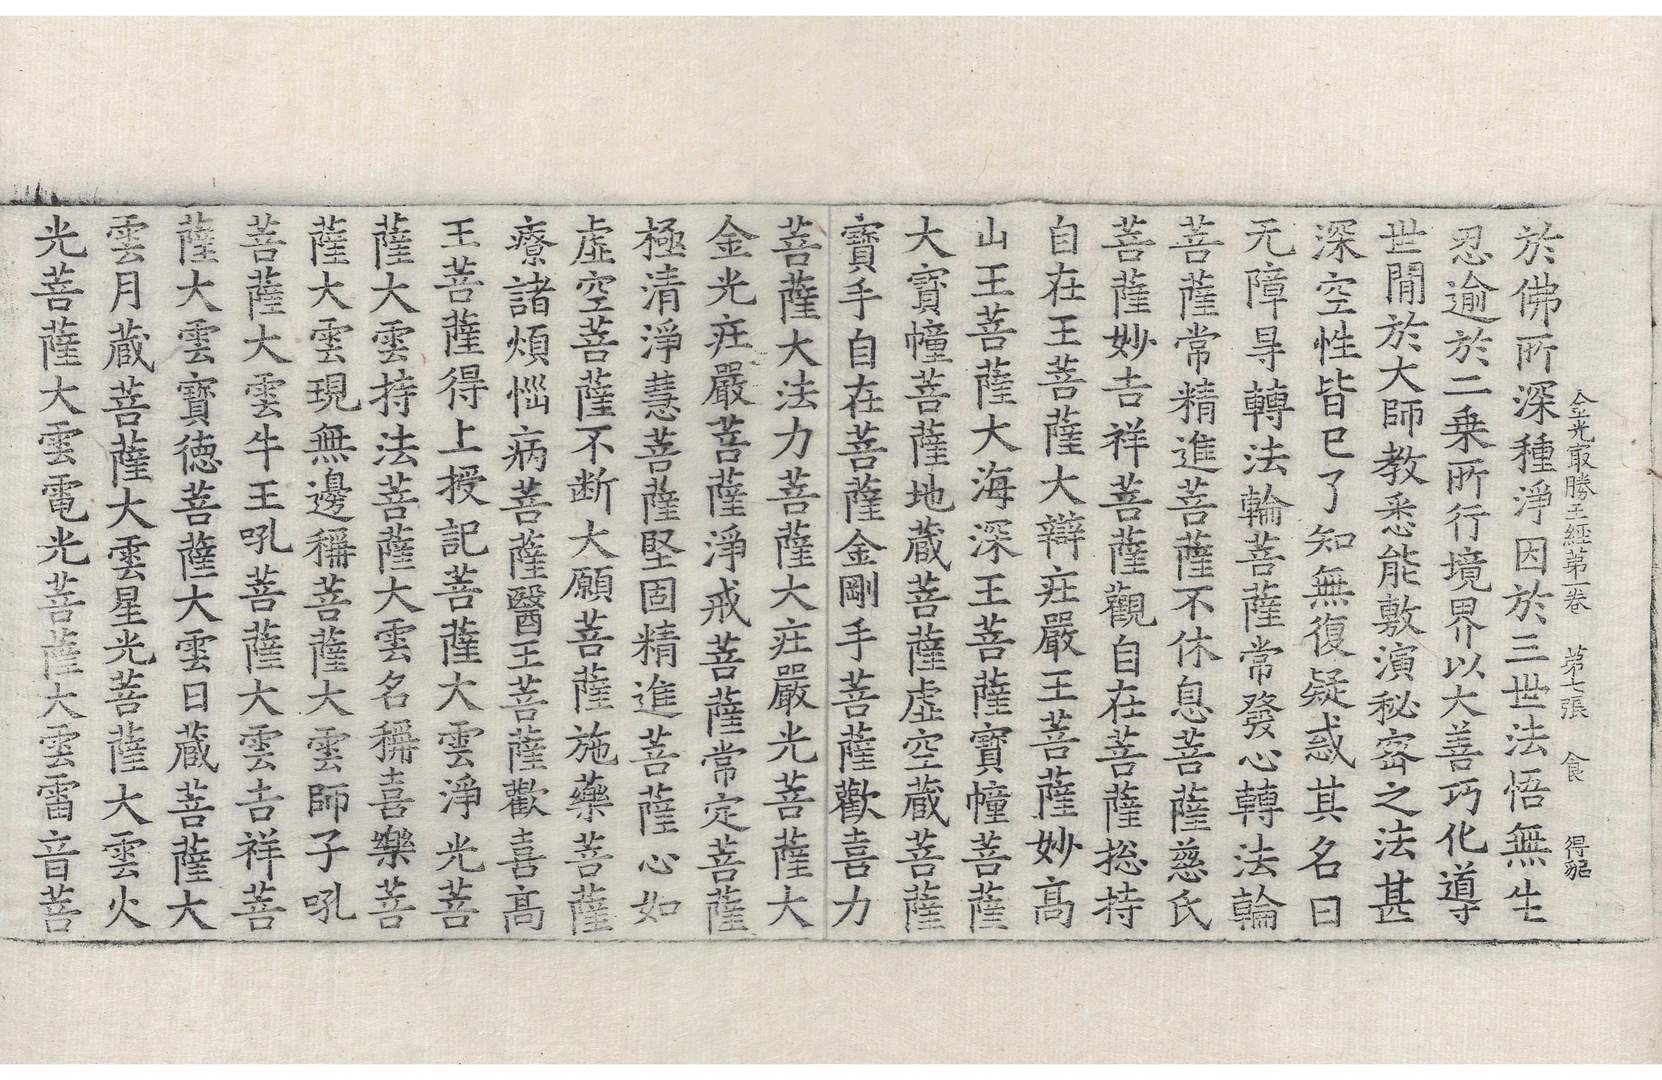 金光㝡勝王經第一卷　第七張　食　得貂
於佛所深種淨因於三世法悟無生
忍逾於二乗所行境界以大善巧化導
世間於大師教悉能敷演秘密之法甚
深空性皆已了知無復疑惑其名曰
无障㝵轉法輪菩薩常發心轉法輪
菩薩常精進菩薩不休息菩薩慈氏
菩薩妙吉祥菩薩觀自在菩薩捴持
自在王菩薩大辯庄嚴王菩薩妙高
山王菩薩大海深王菩薩寶幢菩薩
大寶幢菩薩地蔵菩薩虛空蔵菩薩
寶手自在菩薩金剛手菩薩歡喜力
菩薩大法力菩薩大庄嚴光菩薩大
金光庄嚴菩薩淨戒菩薩常定菩薩
極清淨慧菩薩堅固精進菩薩心如
虛空菩薩不断大願菩薩施藥菩薩
療諸煩惱病菩薩醫王菩薩歡喜高
王菩薩得上授記菩薩大雲淨光菩
薩大雲持法菩薩大雲名稱喜樂菩
薩大雲現無邊稱菩薩大雲師子吼
菩薩大雲牛王吼菩薩大雲吉祥菩
薩大雲寶徳菩薩大雲日蔵菩薩大
雲月蔵菩薩大雲星光菩薩大雲火
光菩薩大雲電光菩薩大雲雷音菩